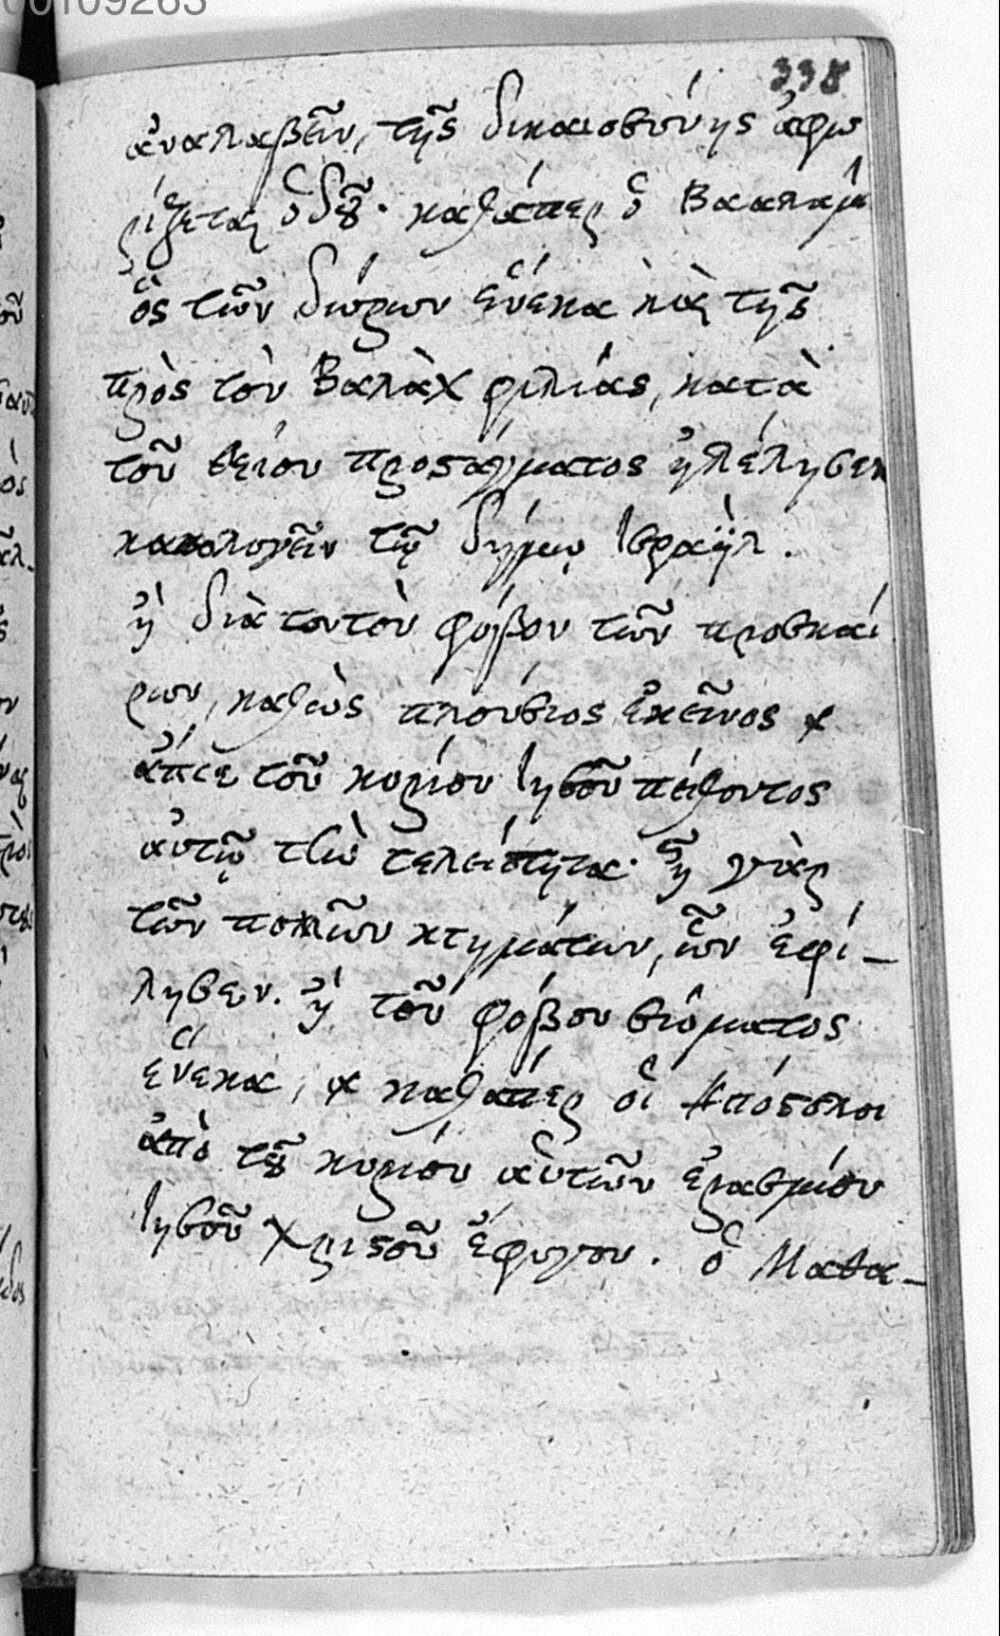 00109263
338
ἀναλαβεῖν, τῆς δικαιοσύνης ἀφω
ρίζεται ὁδοῦ· καθάπερ ὁ Βααλαὰμ
ὃς τῶν δώρων εἵνεκα καὶ τῆς
πρὸς τὸν Βαλὰχ φιλίας, κατὰ
τοῦ θείου προστάγματος ἠθέλησεν
κακολογεῖν τῷ δήμῳ Ισραὴλ.
ἢ διὰ τοῦτον φόβον τῶν προσκαί
ρων, καθὼς πλούσιος ἐκεῖνος
τοῦ κυρίου Ιησοῦ
αὐτῷ τὴν τελειότητα· ἢ γὰρ
τῶν πολλῶν κτημάτων, ὧν ἐφί-
λησεν. ἢ τοῦ φόβου σώματος
εἵνεκα, καθάπερ οἱ Ἀπόστολοι
ἀπὸ τοῦ κυρίου αὐτῶν ἐρασμίου
Ιησοῦ Χριστοῦ ἔφυγον. ὁ Ματθα-